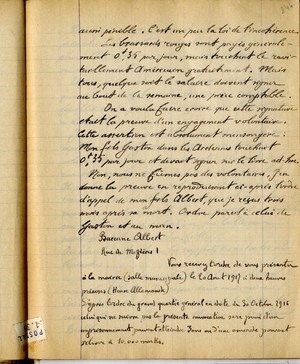 aussi pénible. C'est un peu la loi de l'incohérence.
Les brassards rouges sont payés générale-
ment 0f.35 par jour, mais touchent le ravi-
taillement Américain gratuitement. Mais
tous, quelque soit le salaire doivent signer
au bout de la semaine, une pièce comptable.
On a voulu faire croire que cette signature
était la preuve d'un engagement volontaire.
Cette assertion est absolument mensongère.
Mon fils Gaston dans les Ardennes touchait
0f.35 par jour et devait signer sur le livre ad-hoc.
Non, nous ne fûmes pas des volontaires. J'en
donne la preuve en reproduisant ci-après l'ordre
d'appel de mon fils Albert, que je reçus trois
mois après sa mort. Ordre pareil à celui de
Gaston et au mien.
Albert
Rue de 1
Vous recevez l'ordre de vous présenter
à la mairie (salle municipale) le 20 Août 1917 à deux heures
précises (Heure Allemande)
D'après l'ordre du grand quartier général en date du 30 Octobre 1916
celui qui ne suivra pas la présente sera puni d'un
emprisonnement 3 ans ou d'une amende pouvant
s'élever à 10.000 marks.
POSTALE